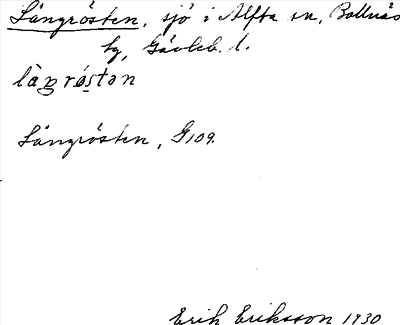 Långrösten, sjö i Alfta sn, Bollnäs
tg, Gävleb. l.
Långrösten, G109.
Erik Eriksson 1930